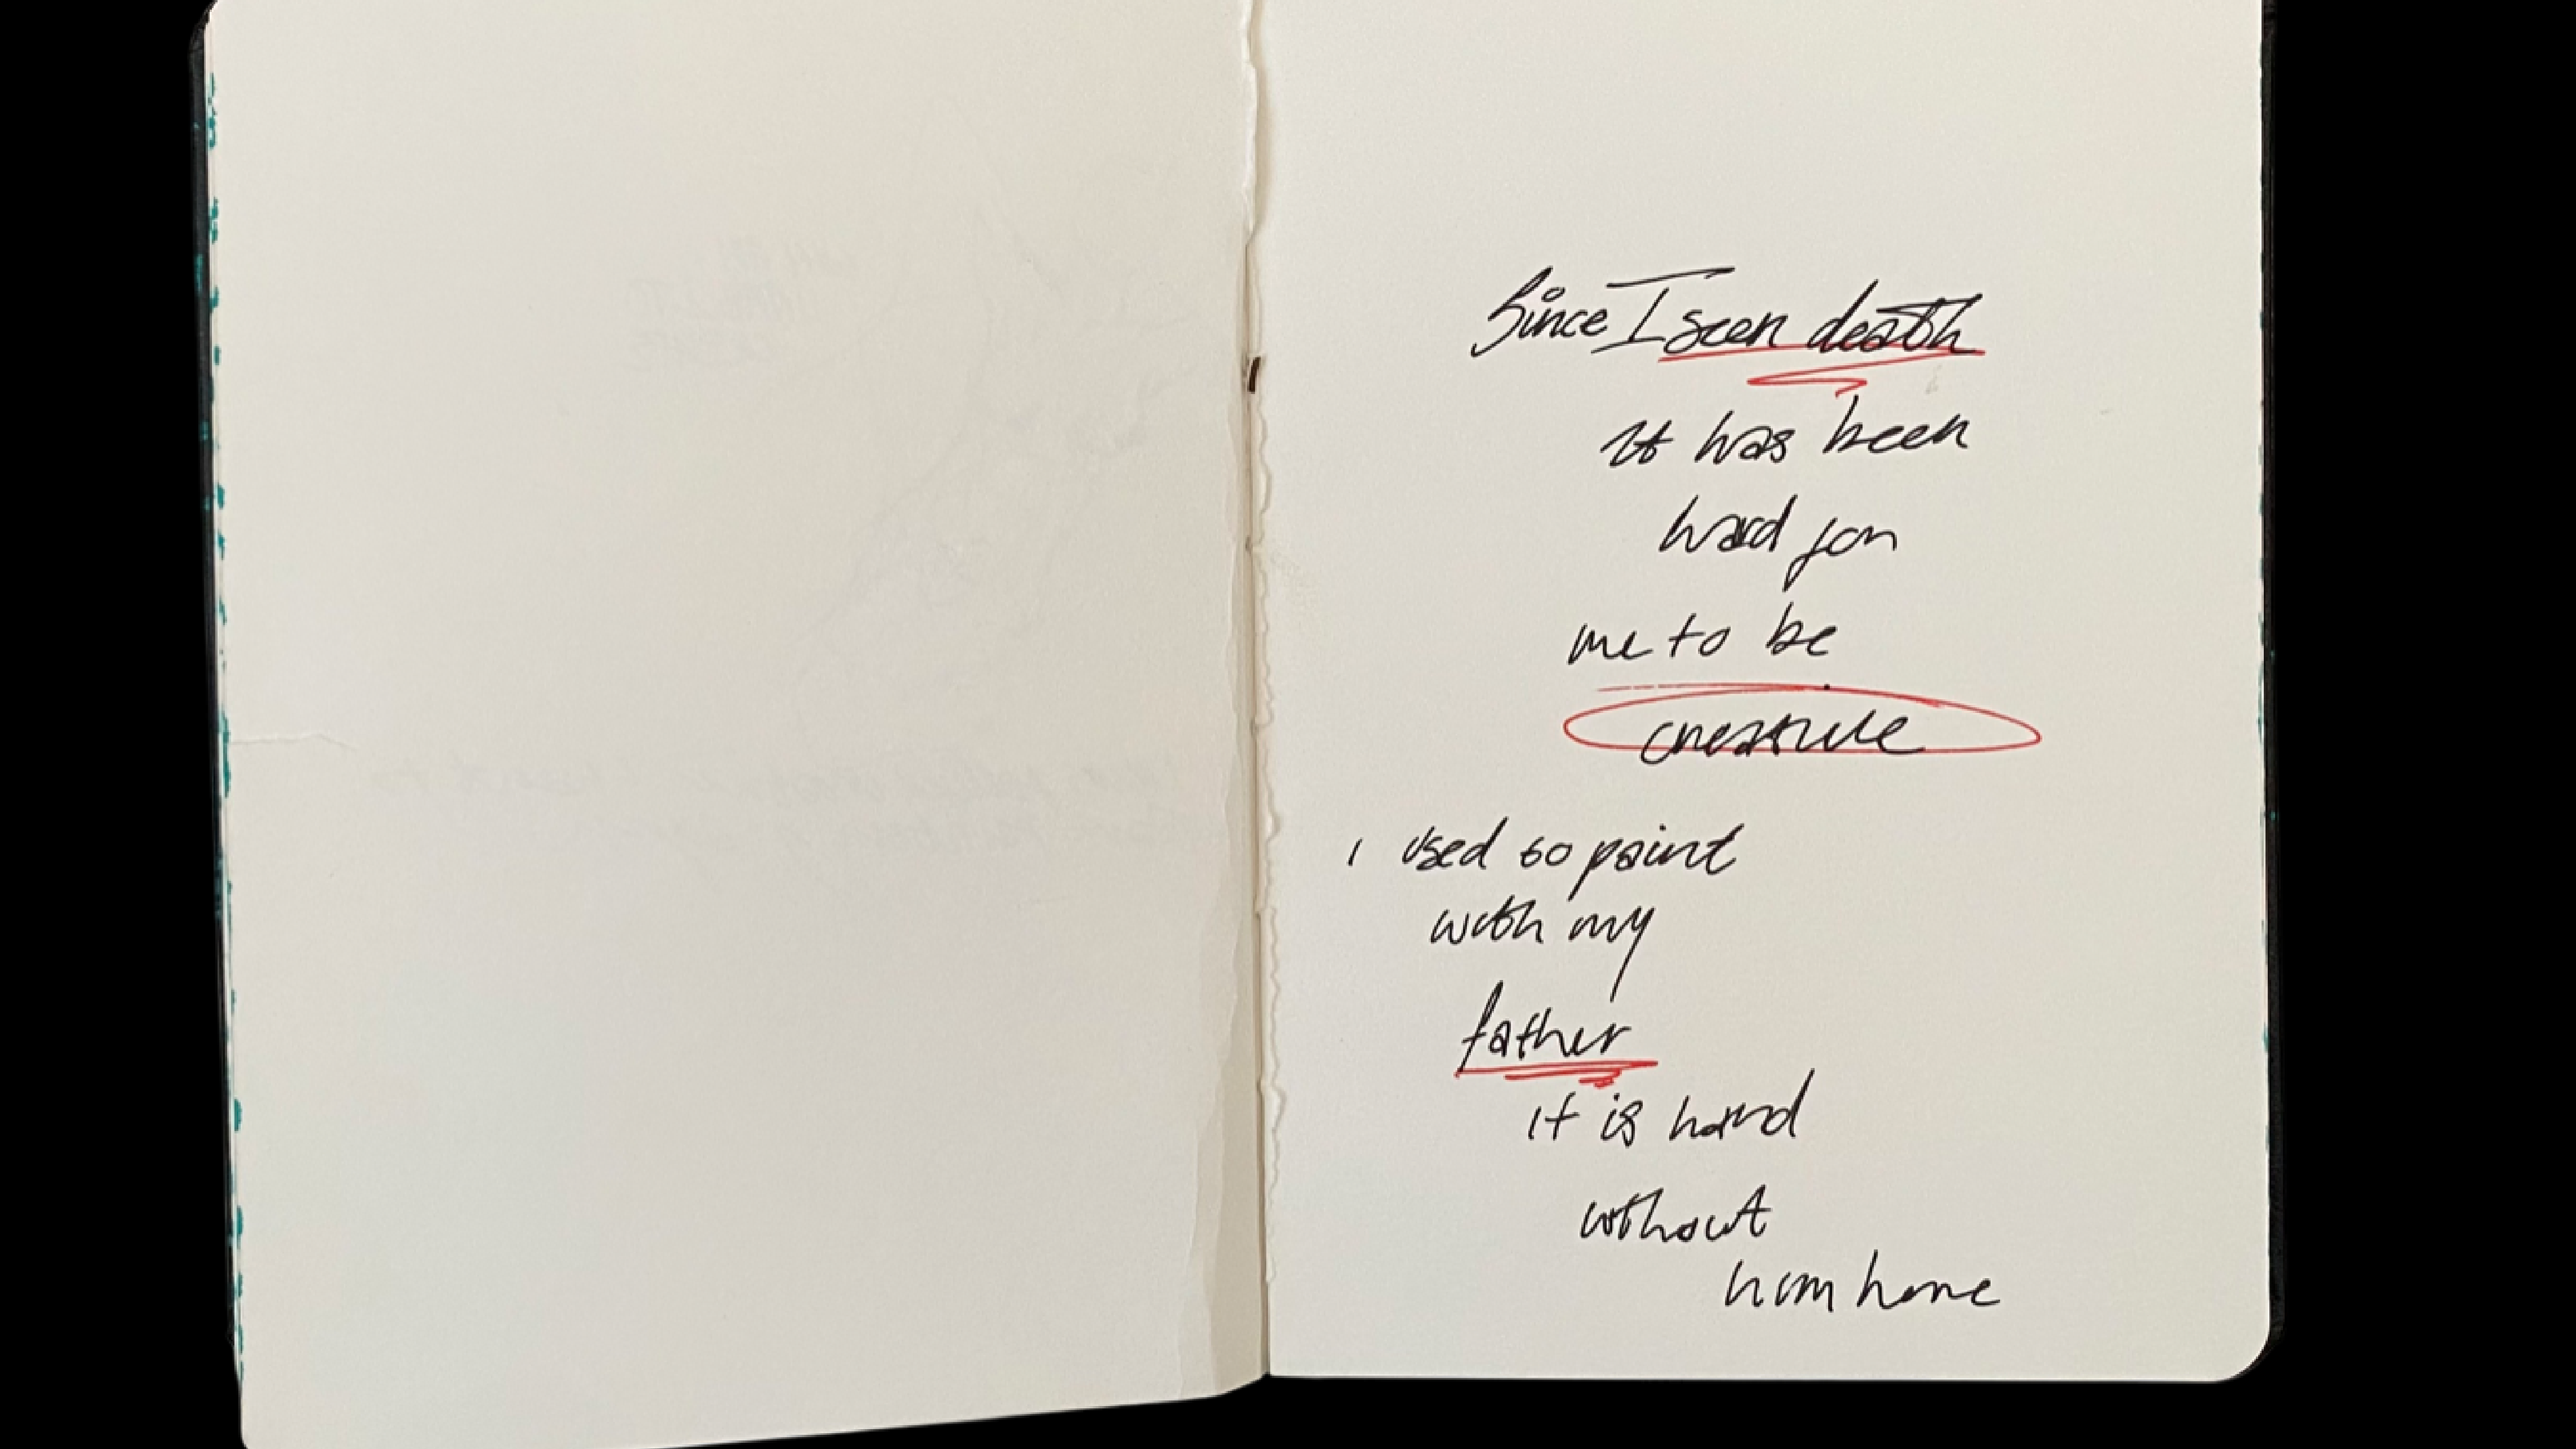 Since I seen death
it has been
hard for
me to be
creative
I used to paint
with my
father
it is hard
without
him home